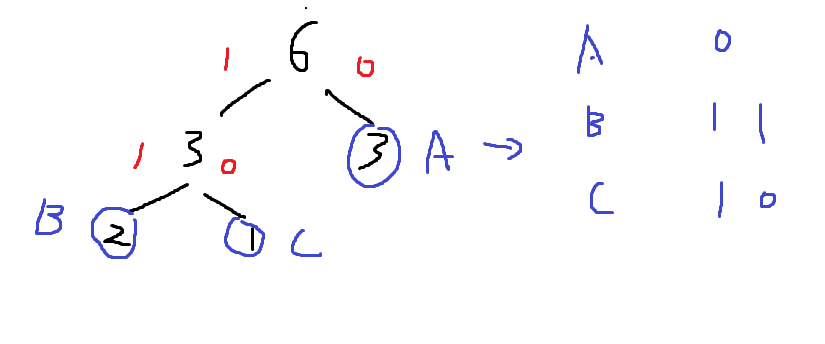 6
1 0
3 3 A → A 0
1 0
B 2 1 C
B 1 1
C 1 0